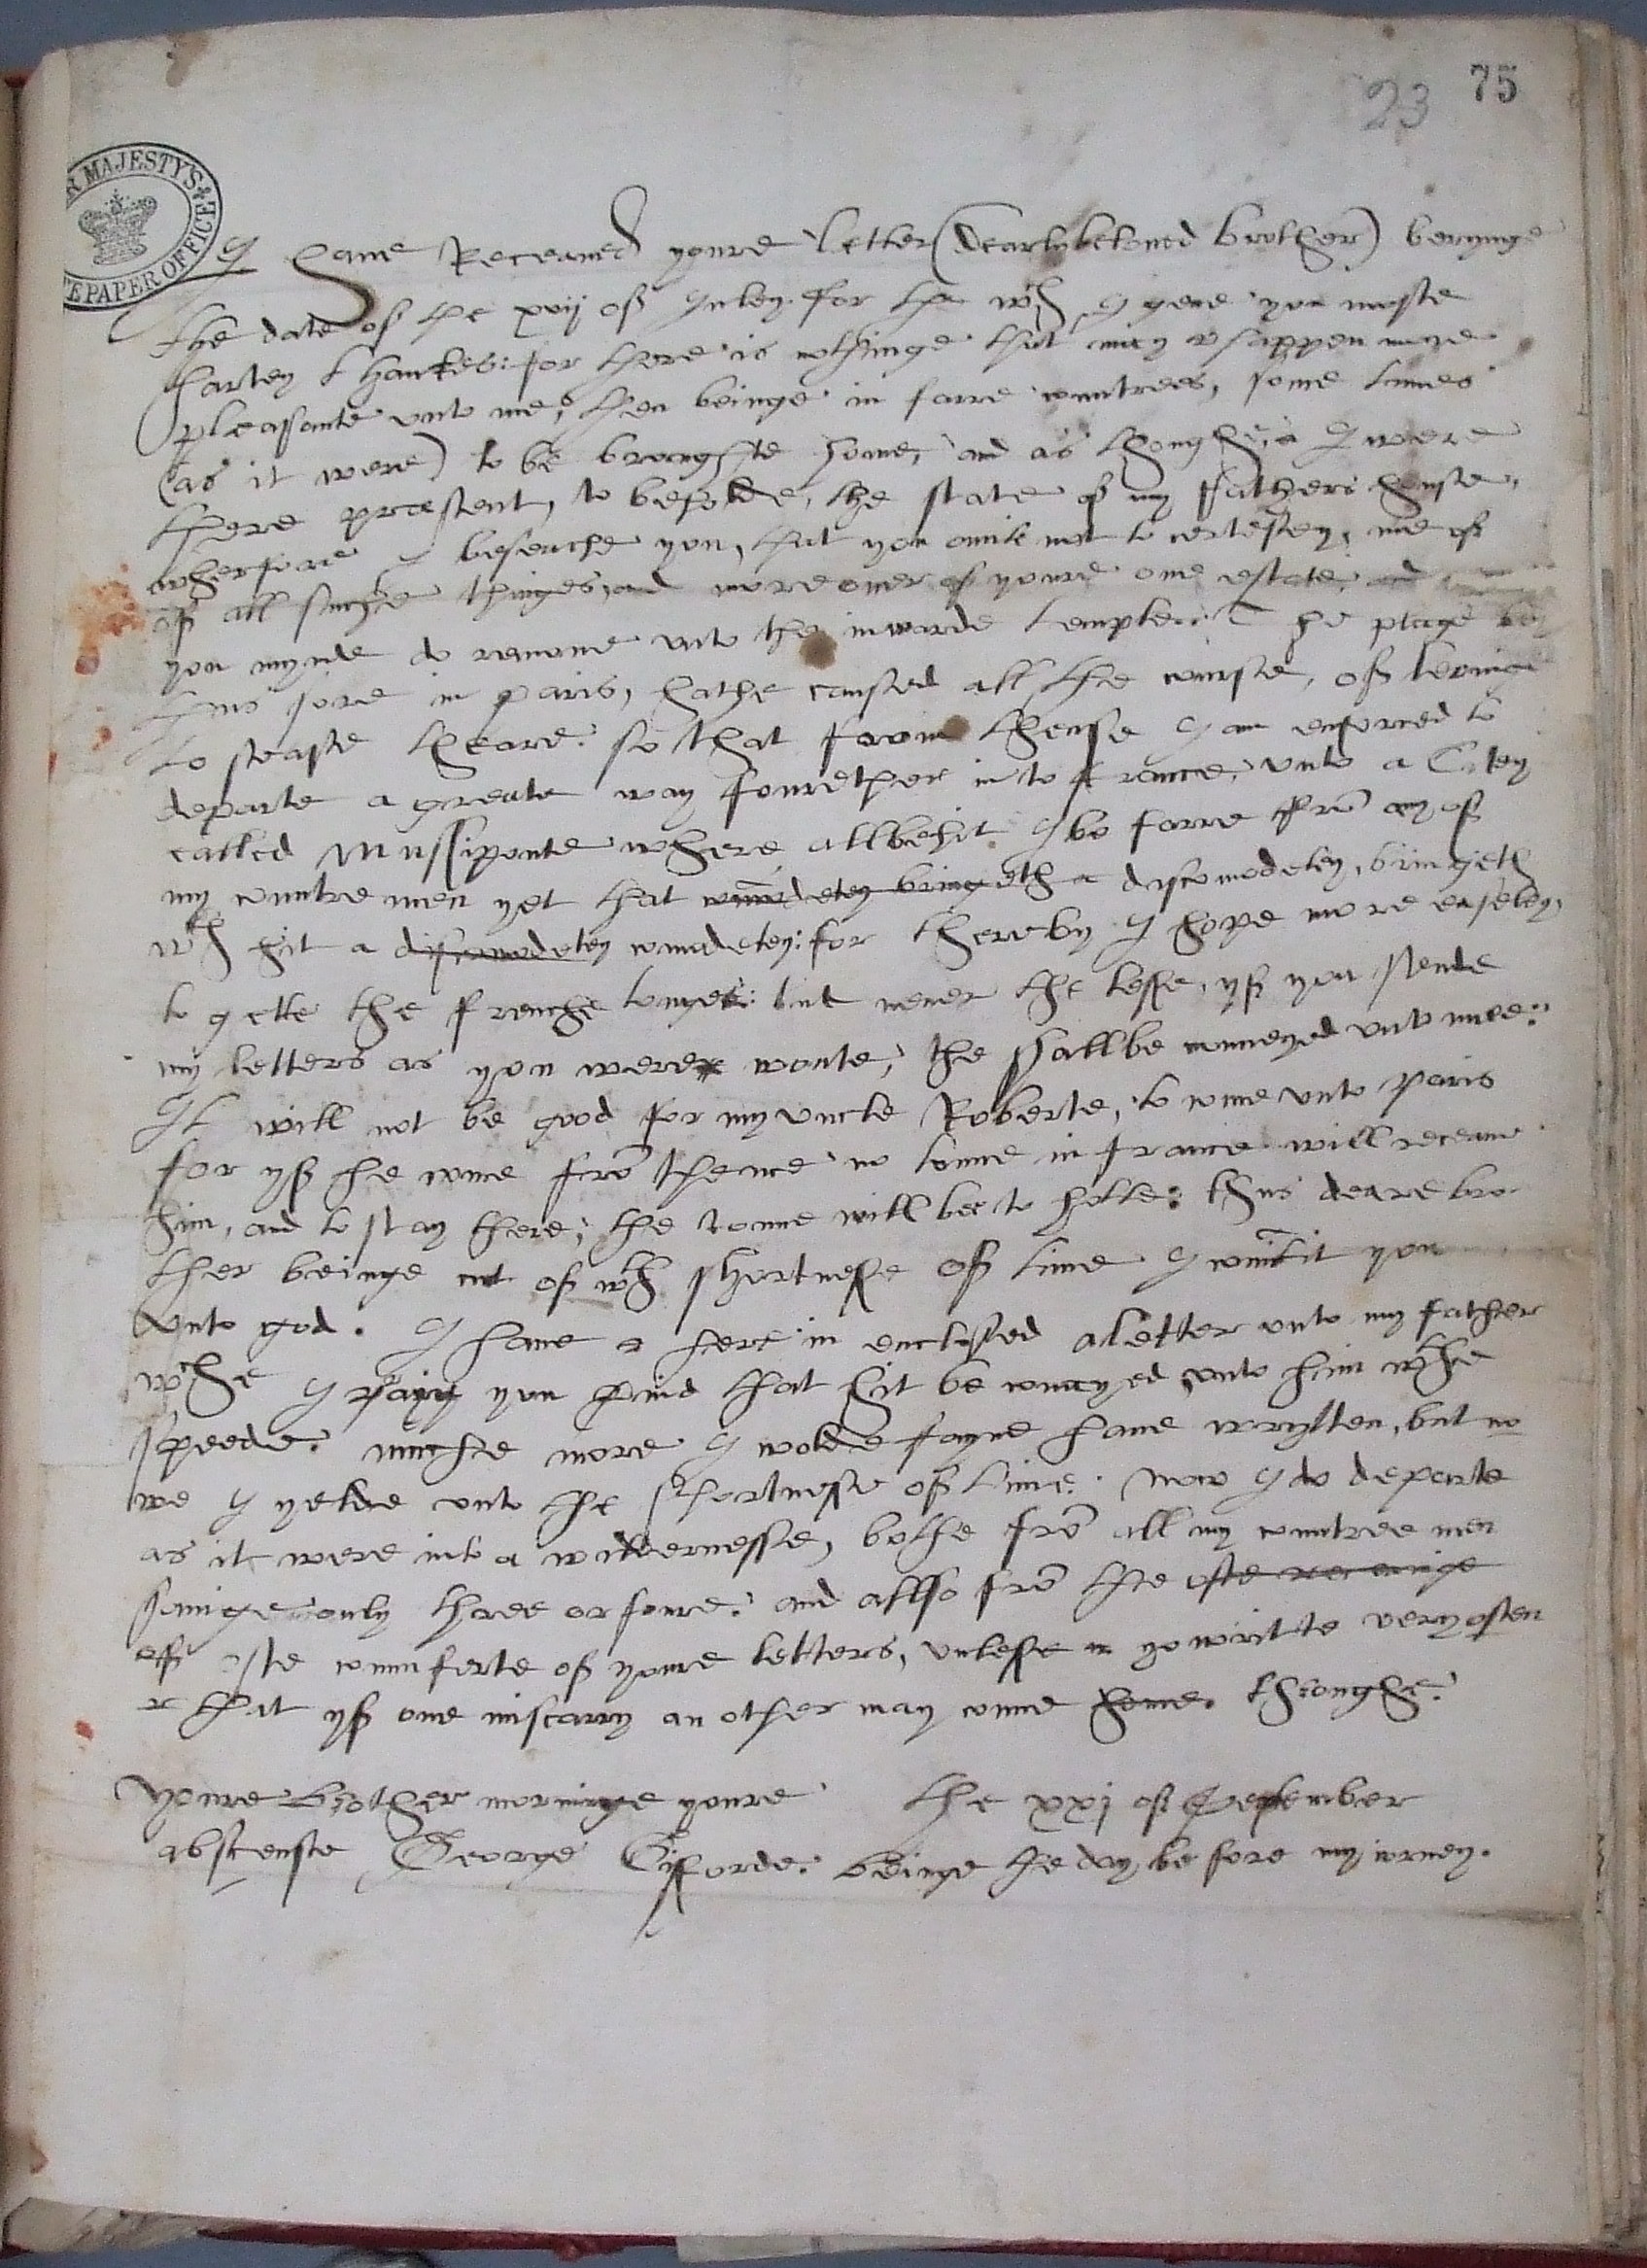 75
23
R MAJESTY'S
TE PAPER OFFICE
I have Receaued youre letter (Dearly beloued brother) berynge
the date of the xvij of Iuley. for the wch I geue you moste
hartey thankes: for there is nothinge that may happen more
pleasante unto me, then beinge in farre countrees, some times
(as it were) to be broughte home, and as thoughe I were
there praesent, to beholde, the state of my fathers house,
wherfore I beseache you, that you omit not to certefey, me of
of all suche thinges, and moreouer of youre one estate, and
you mynde to remoue unto the inwarde temple: The plage
thus sore in paris, hathe caused all the course, of
to sease theare: so that from thense I am enforced to
departe a greate way fourether into france, unto a Citey
called Mussiponte where allbehit I be farre frō any of
my countre men yet that comōdetey bringeth a discomodetey, bringeth
wth hit a discomodetey comodetey: for thereby I hope more easeley,
to gette the frenche tonge: but neuer the lesse, yf you sende
my letters as you were wonte, the shall be conueyed unto mee:
It will not be good for my uncle Roberte, to come unto Paris
for yf he come frō thence no toune in france will receaue
him, and to stay there, the toune will bee to hotte: thus deare bro-
ther beinge cut of wth shortnesse of time I comit you
unto god. I haue here in enclosed a letter unto my father
wche I pray you that hit be conueyed unto him wthe
speede. muche more I wolde fayne haue wrytten, but no
we I yelde unto the shortnesse of time. Now I do departe
as it were into a wildernesse, bothe frō all my countree men
sauinge only three or foure. and allso frō the ofte receauinge
of ofte comferte of youre letters, unlesse yo writte very often
that yf one miscarry an other may come home. throughe.
Youre brother morninge youre the xxj of September
abscense George Gifforde. beinge the day before my iorney.